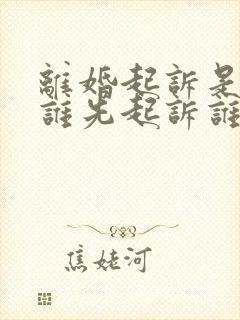 離婚起訴是
誰先起訴誰
焦姥河